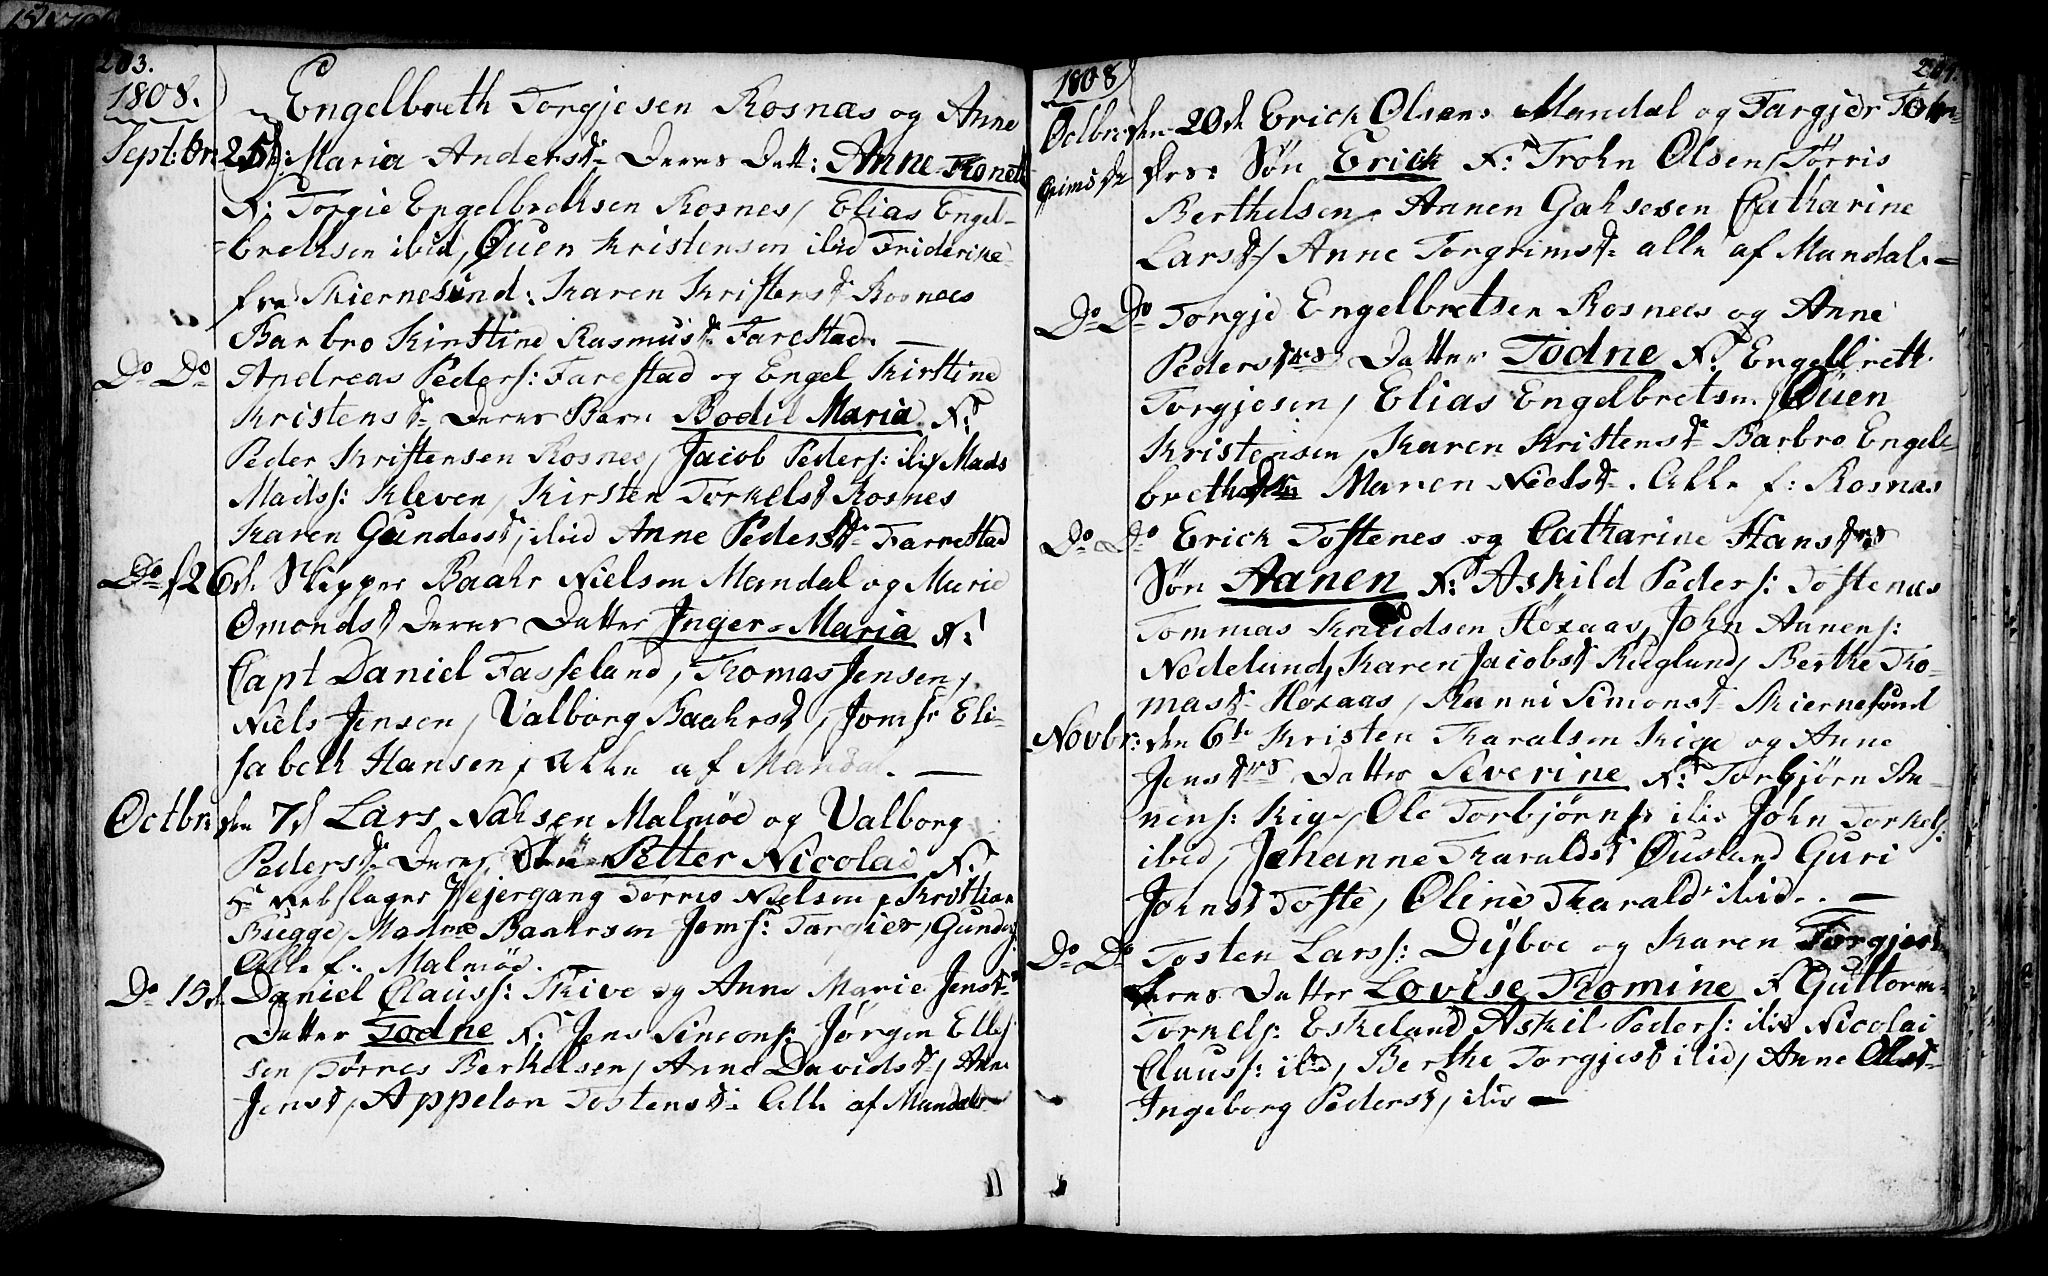 203.
1808.
Engelbreth Torgjesen Rosnæs og Anne
Sept:br: 25d: Maria Andersd: Deres Datt: Anne Thonett
F: Torgie Engelbrethsen Rosnes, Elias Engel-
brethsen ibid, Øuen Kristensen ibid Friderike
fra Skiernesund: Karen Kristensd Rosnæs
Barbro Kirstine Rasmusd: Farestad. —
Do Do Andreas Peders: Farestad og Engel Kirstine
Kristensd: Deres Barn Bodil Maria. F:
Peder Kristensen Rosnes, Jacob Peders: ibid Mads
Madss: Kleven, Kirsten Torkelsd Rosnes
Karen Gundersd, ibid Anne Pedersd: Farrestad
Do d 26d. Skipper Baahr Nielsen Mandal og Marie
Omondsd Deres Datter Inger-Maria F:
Capt Daniel Fasseland, Thomas Jensen,
Niels Jensen, Valborg Baahrsd, Jomfr Eli-
sabeth Hansen, Alle af Mandal. —
Octbr: den 7d Lars Nahsen Malmöe og Valborg
Pedersd: Deres Sön Petter Nicolai F:
Hr Rebslager Vejergang Torres Nielsen, Kristian
Bugge, Madme Baahrsen Jomf: Targier, Gunders
Alle f: Malmöe. —
Do 15d. Daniel Clauss: Skive og Anne Marie Jensd:
Datter Todne F: Jens Simons: Jørgen Elles
sen, Tørres Berthelsen, Anne Davidsd, Anne
Jensd, Appelon Tostensd: Alle af Mandal
1808
204.
Octbr: den 20d Erick Olsens Mandal og Targjer Torn-
grimsd: ders: Søn Erick F: Trohn Olsen, Tørris
Berthelsen, Aanen Gahsesen Catharine
Larsd, Anne Torgrimsd: alle af Mandal. —
Do Do Torgje Engelbretsen Rosnæs og Anne
Pedersdrs Datter Todne F: Engelbreth
Torgjesen, Elias Engelbretsen, Øüen
Kristensen, Karen Kristensd: Barbro Engel-
brethsd: Maren Nielsd:. Alle f: Rosnæs
Do Do Erick Toftenes og Catharine Hansdrs
Søn Aanen F: Askild Peders: Toftenæs
Tommas Knudsen Høxaas, John Aanens:
Nedelund, Karen Jacobsd Ruglund, Berthe Tho-
masd: Høxaas, Ranni Simonsd: Skiernesund
Novbr: den 6te Kristen Tharalsen Kige og Anne
Jensdrs Datter Severine F: Torbjørn Aa-
nens: Kige, Ole Torbjørns: ibid John Torkels:
ibid, Johanne Tharaldsd Øuslund Guri
Johnsd Tofte, Oline Tharald: ibid. —
Do Do Tosten Larss: Dÿboe og Karen Torgjesd:
deres Datter Lovise Thomine F Guttorm
Torkels: Eskeland Askil Peders: ibid Nicolai
Clauss: ibid, Berthe Torgjesd ibid, Anne Olsd:
Ingeborg Pedersd, ibid —